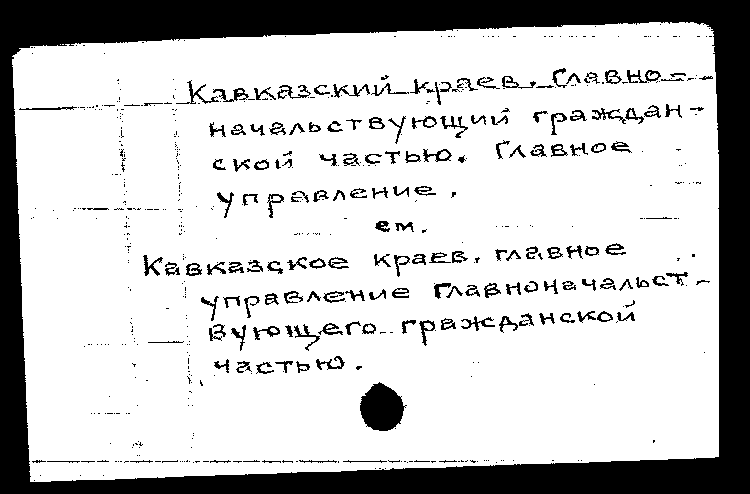 Кавказский краев. Главно-
начальствующий граждан-
ской частью. Главное
управление.
см.
Кавказское краев. главное
управление главноначальст-
вующего гражданской
частью.